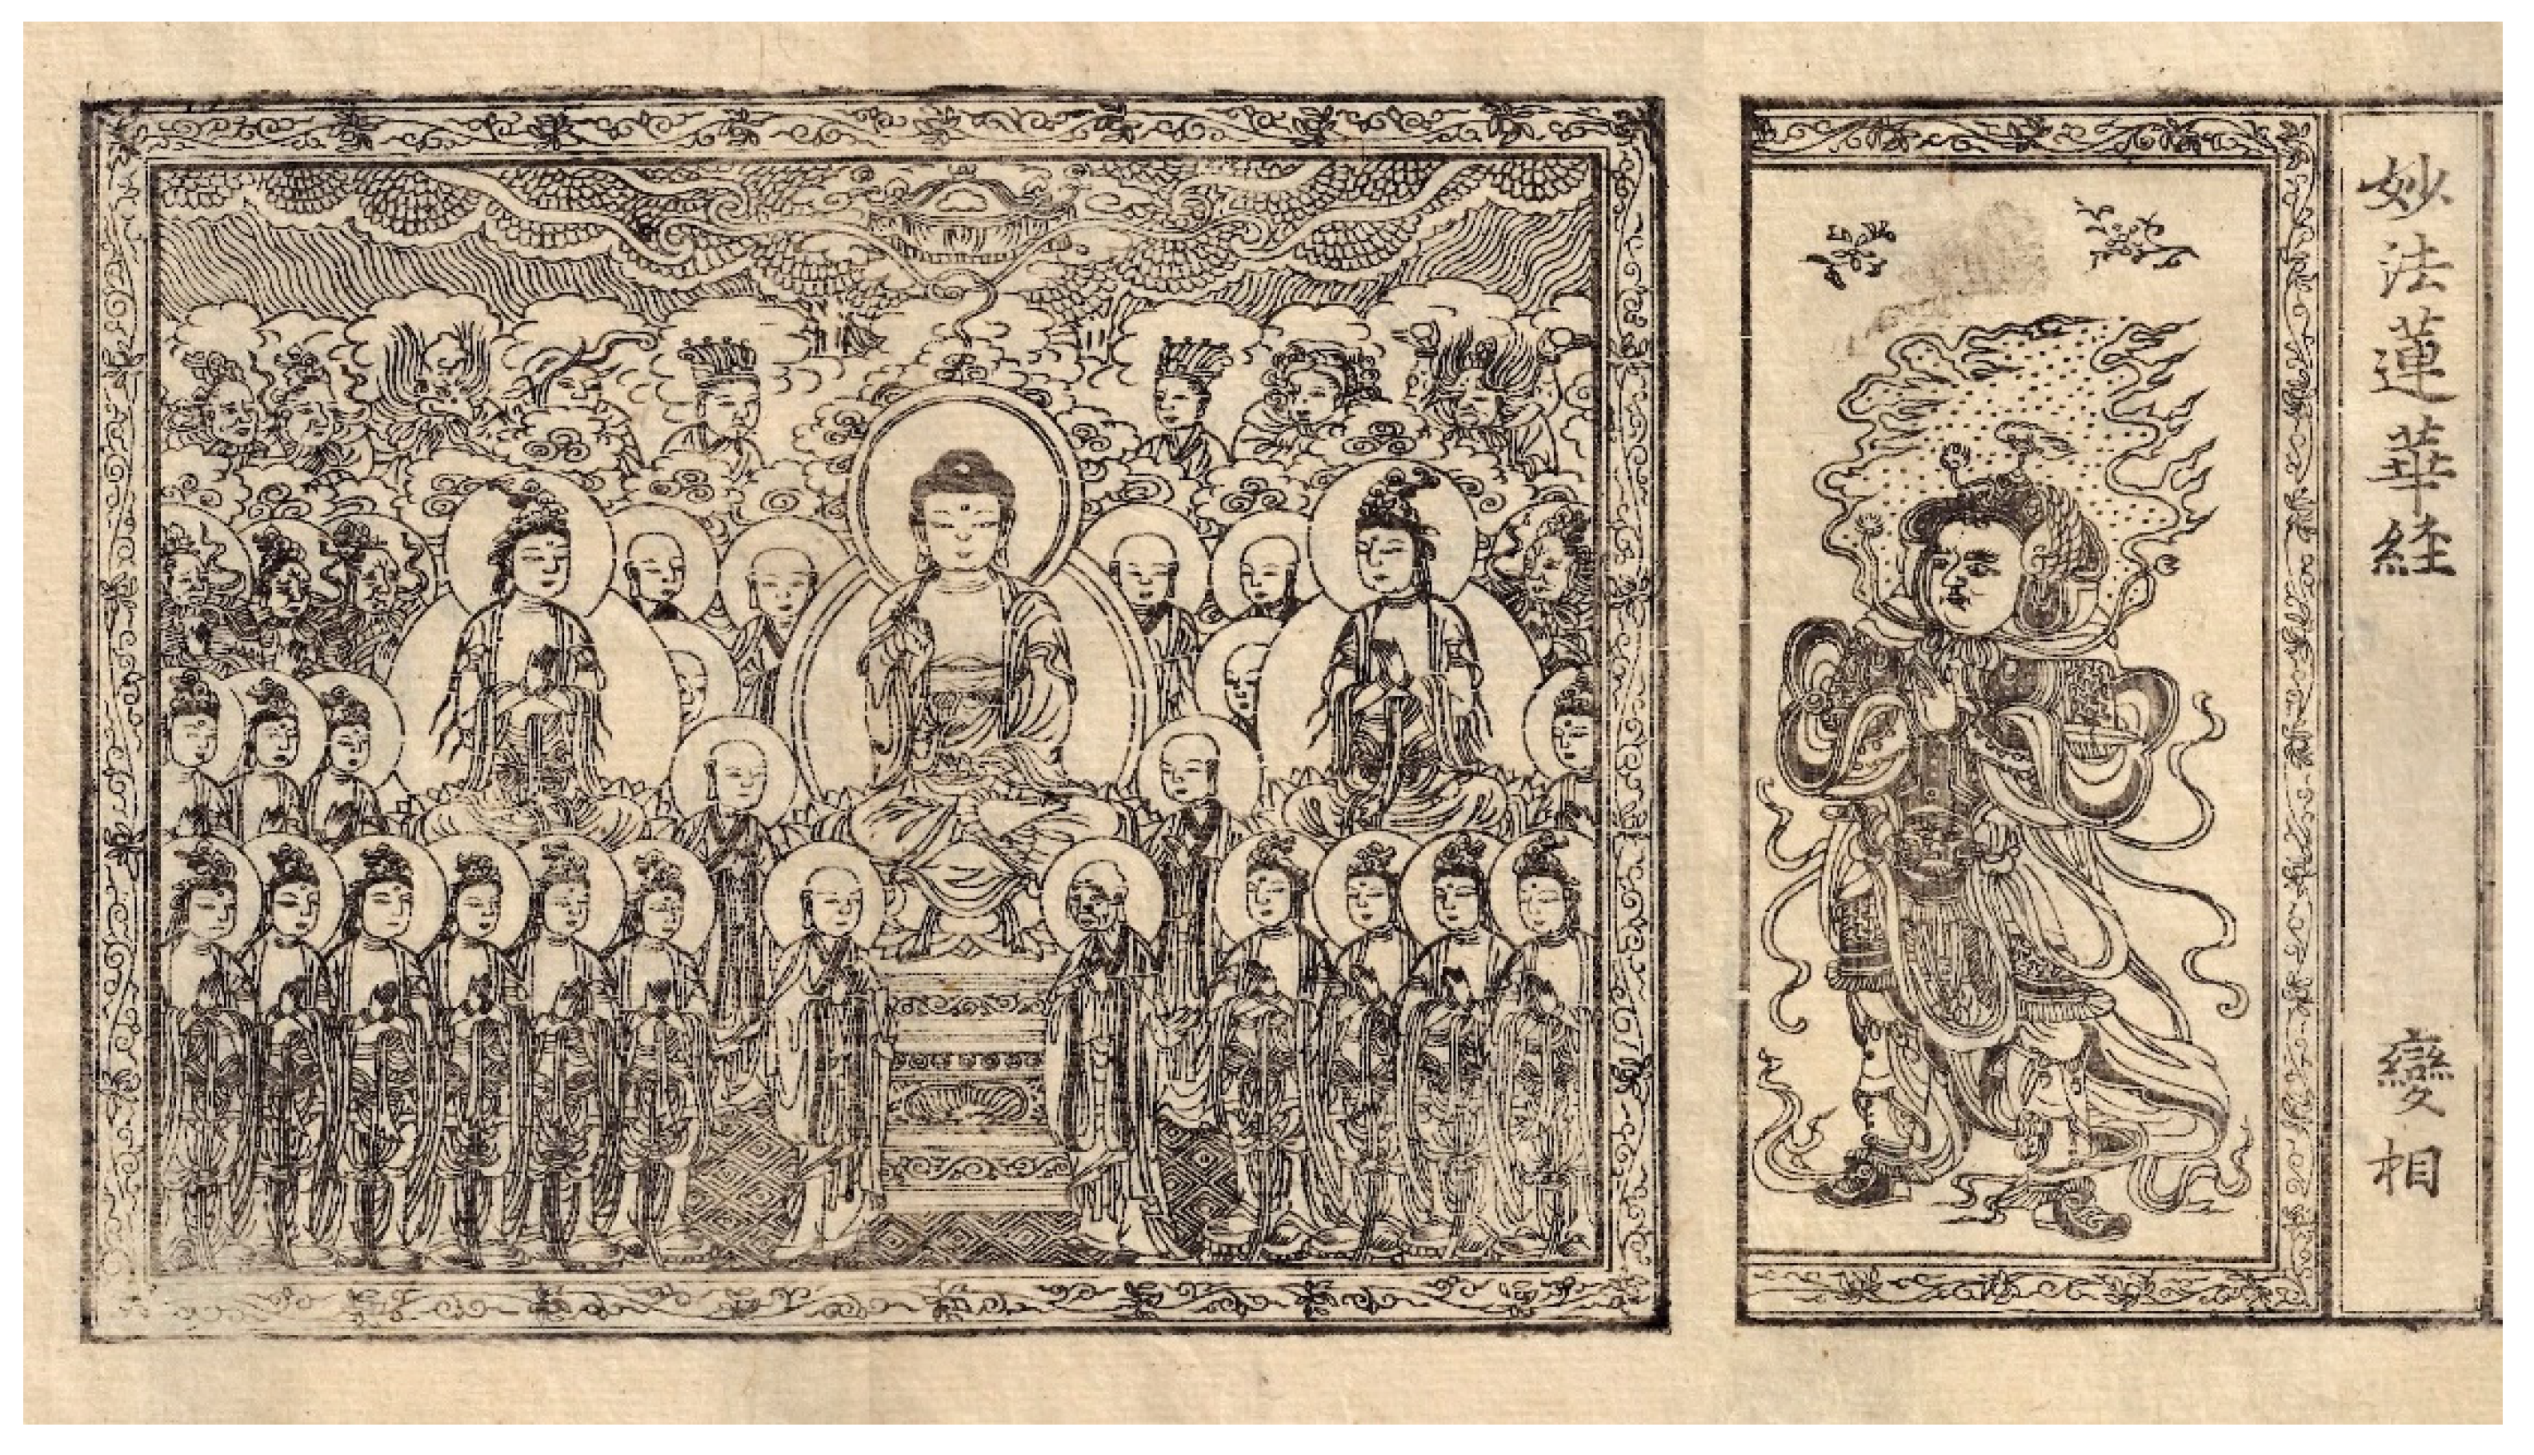 妙法蓮華経 變相